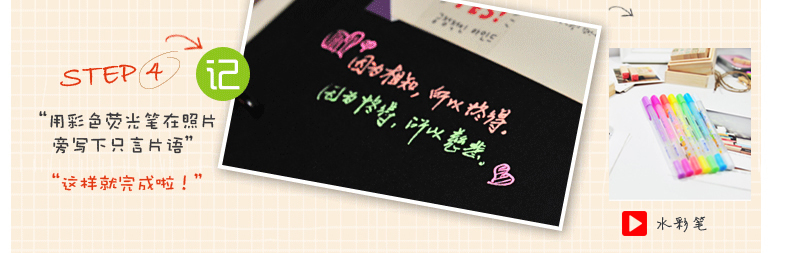 STEP 4
记
“用彩色荧光笔在照片
旁写下只言片语”
“这样就完成啦！”
YES!
因为相知，所以懂得。
因为懂得，所以慈悲。
水彩笔